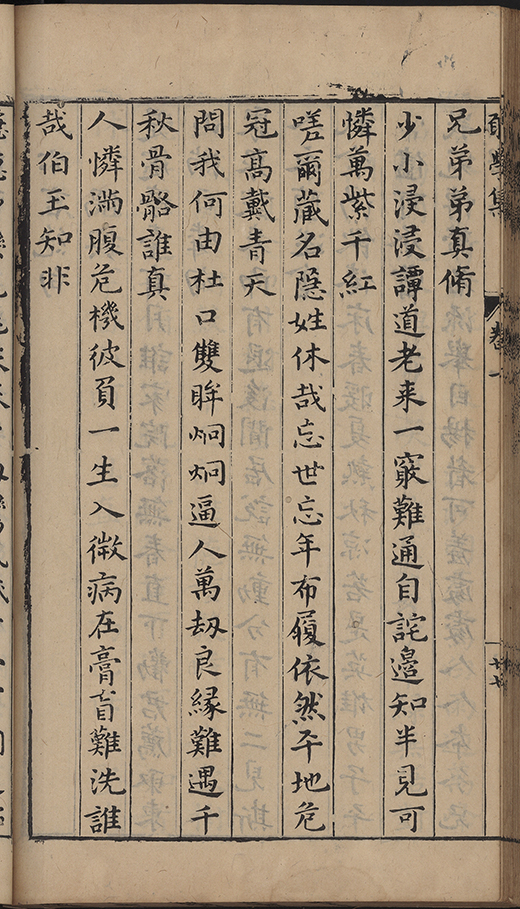 兄弟弟真脩
少小浸浸譚道老来一竅難通自詫邊知半見可
憐萬紫千紅
嗟爾藏名隐姓休哉忘世忘年布履依然平地危
冠髙戴青天
問我何由杜口雙眸炯炯逼人萬刼良緣難遇千
秋骨骼誰真
人憐滿腹危機彼負一生入微病在膏肓難洗誰
哉伯玉知非